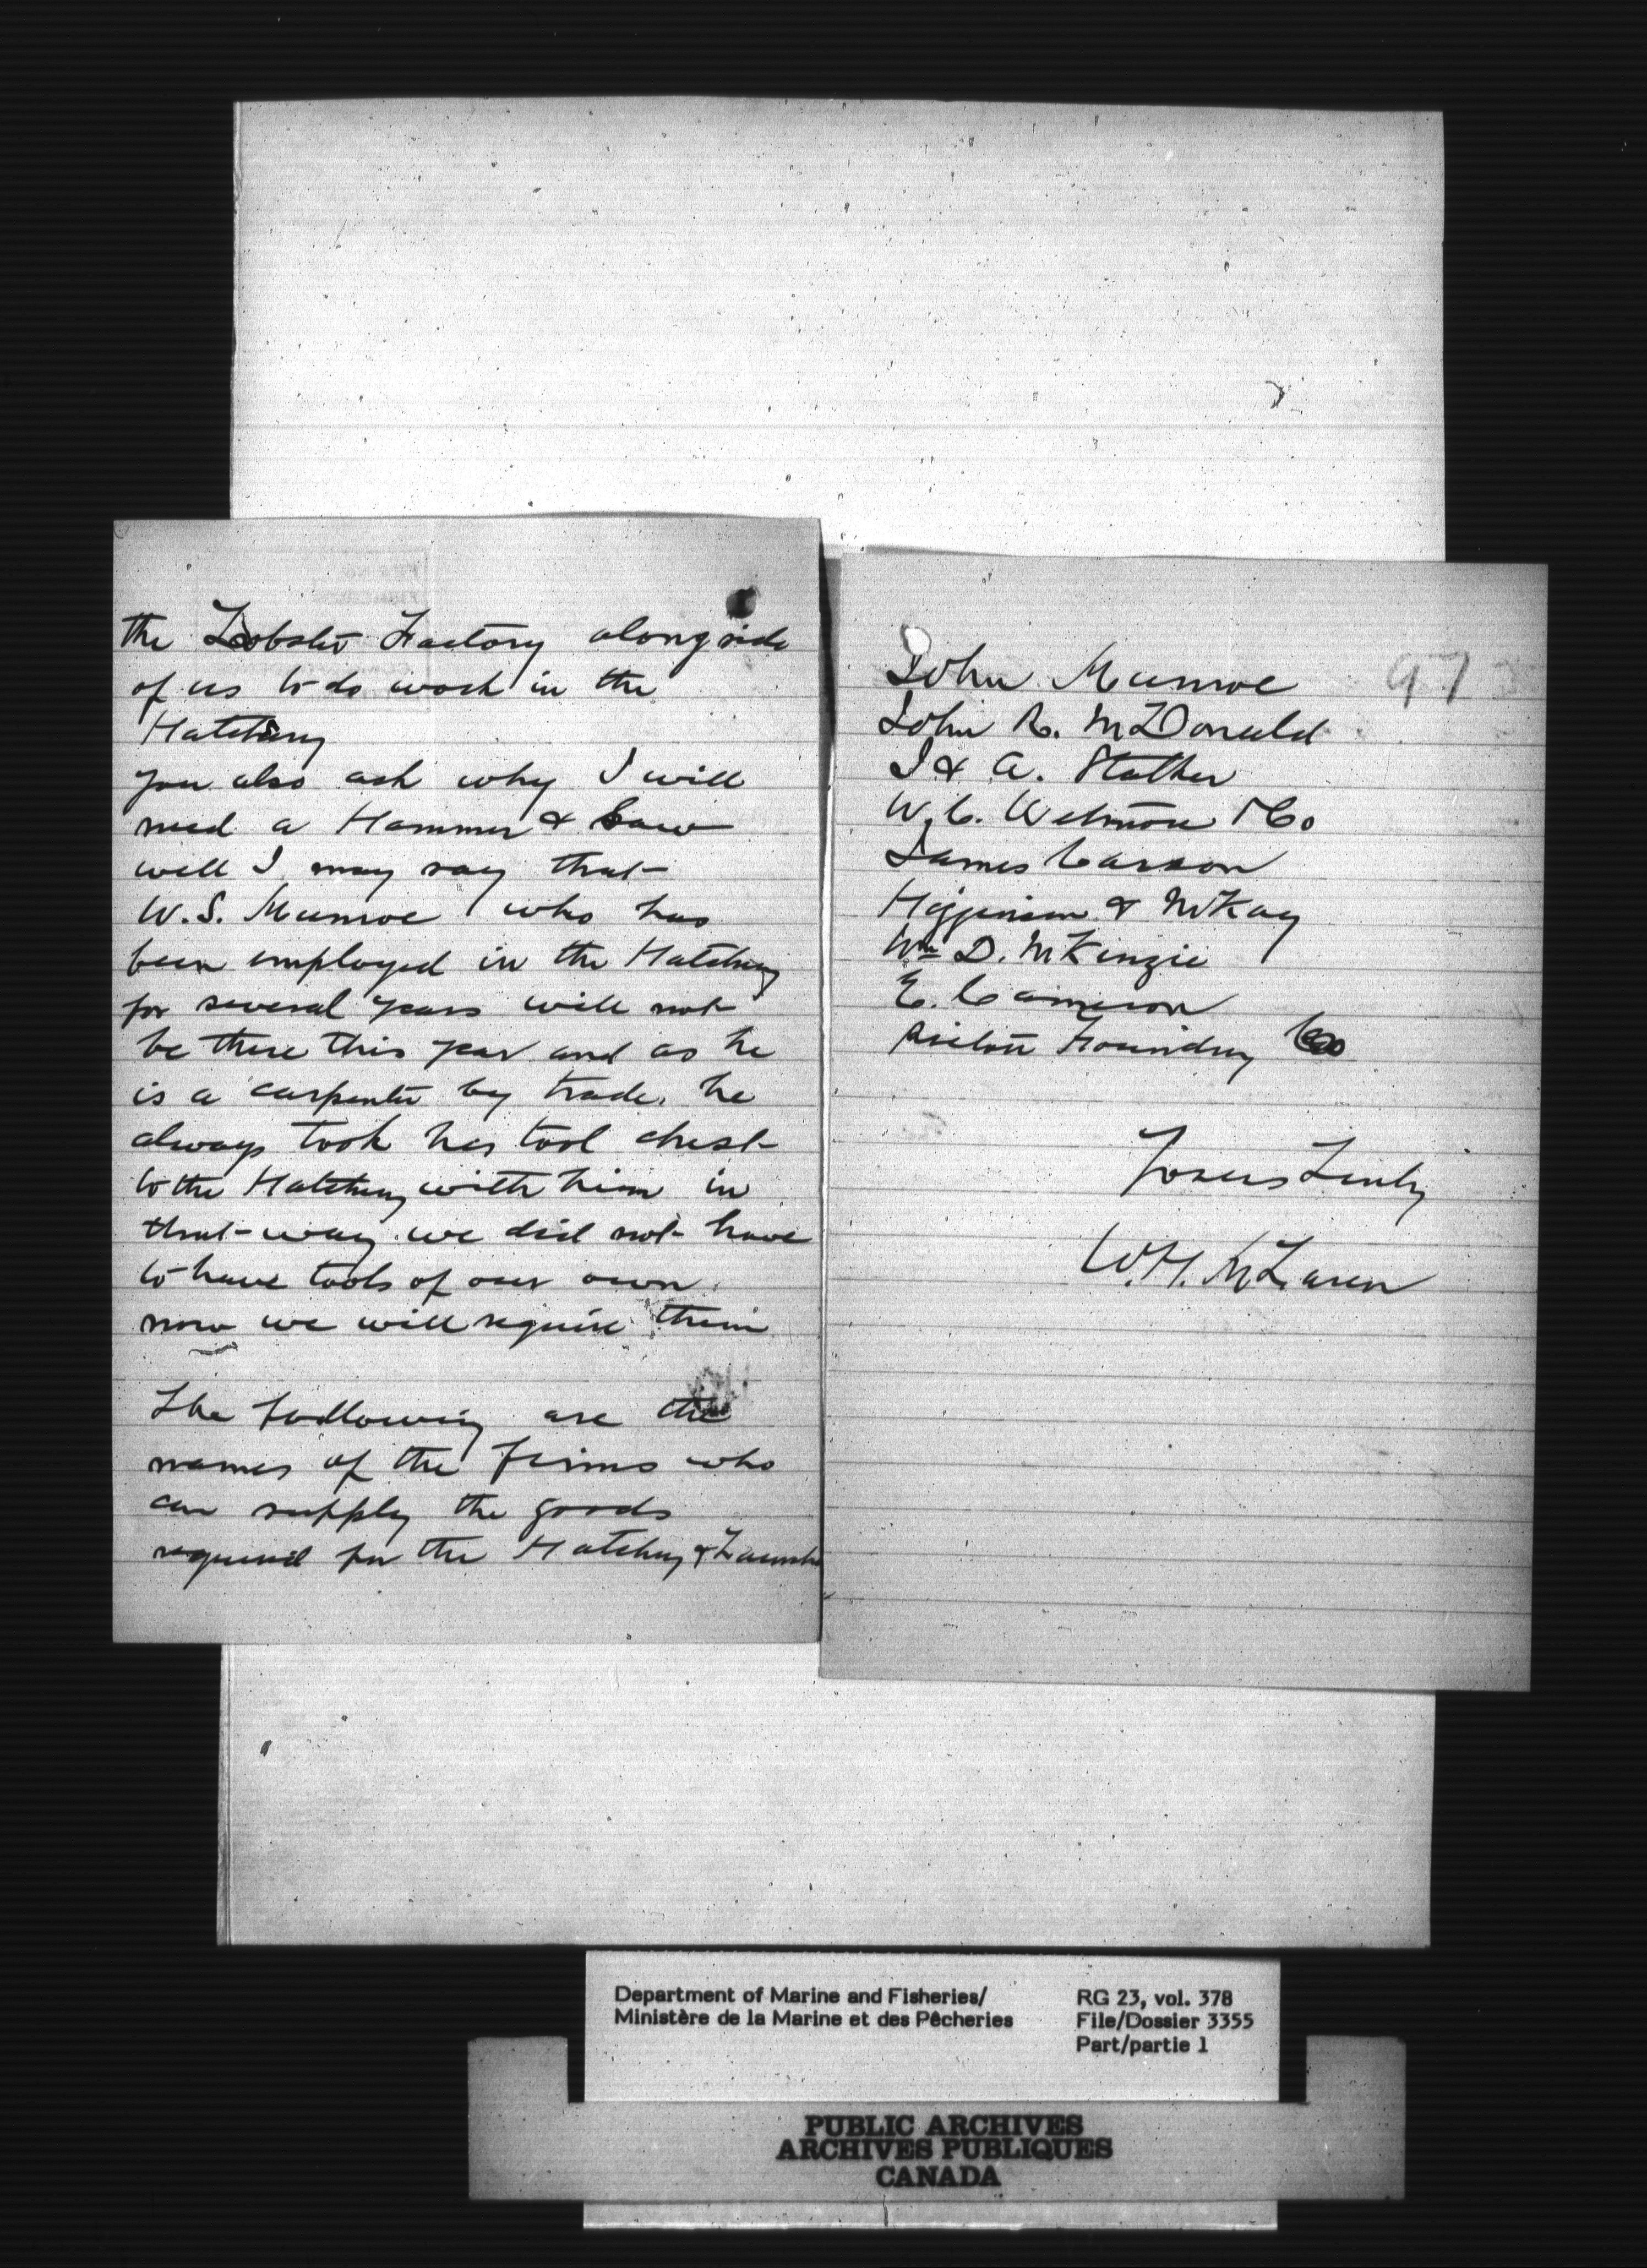 the Lobster Factory alongside
of us to do work in the
Hatchery
you also ask why I will
need a Hammer & Saw
well I may say that
W.S. Munroe who has
been employed in the Hatchery
for several years will not
be there this year and as he
is a carpenter by trade, he
always took his tool chest
to the Hatchery with him in
that way we did not have
to have tools of our own
now we will require them
The following are the
names of the Firms who
can supply the goods
required for the Hatchery & Launch
97
John Munroe
John R. McDonald
J & A. Stalker
W.C. & Co
James Carson
Higginson & McKay
Wm D. McKenzie
E. Cameron
Pictou Foundry Co
Yours Truly
W.H. McLaren
Department of Marine and Fisheries/
Ministère de la Marine et des Pêcheries
RG 23, vol. 378
File/Dossier 3355
Part/partie 1
PUBLIC ARCHIVES
ARCHIVES PUBLIQUES
CANADA